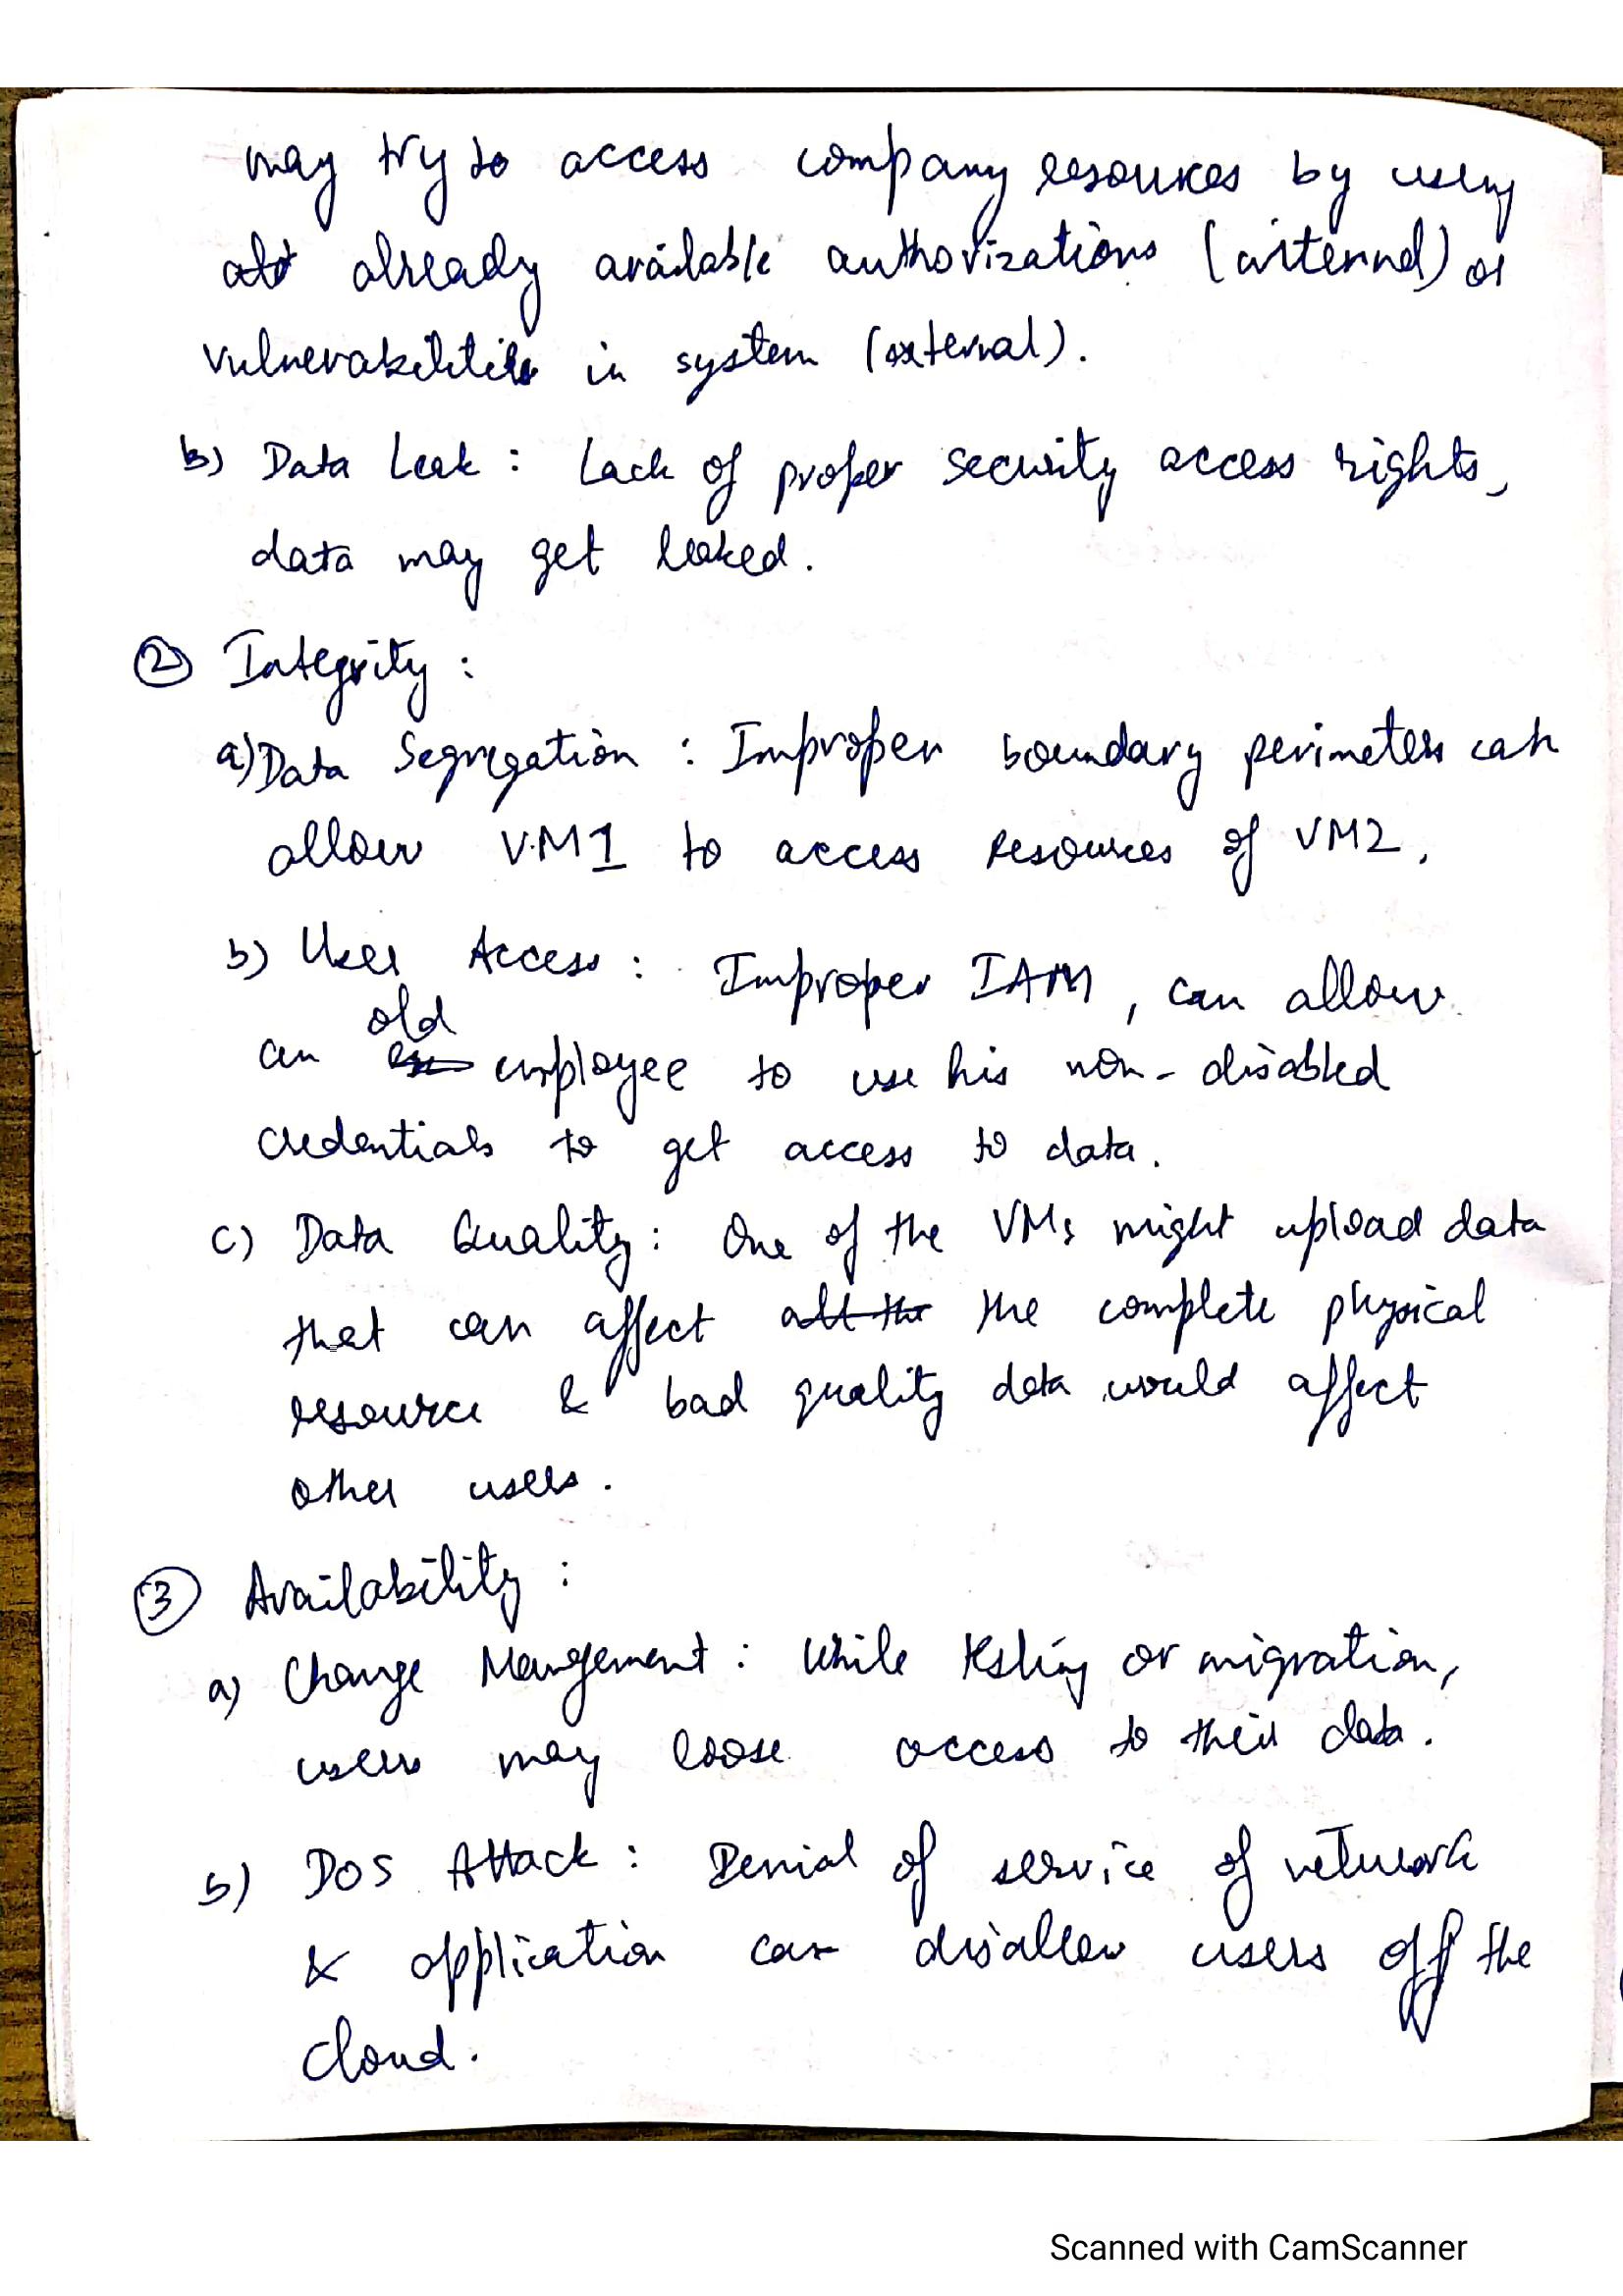 may try to access company resources by using
already available authorizations (internal) or
vulnerabilities in system (external).
b) Data Leak : Lack of proper security access rights,
data may get leaked.
② Integrity :
a) Data Segregation : Improper boundary perimeters can
allow VM1 to access resources of VM2.
b) User Access : Improper IAM, can allow
an old employee to use his non-disabled
credentials to get access to data.
c) Data Quality : One of the VMs might upload data
that can affect the complete physical
resource & bad quality data would affect
other users.
③ Availability :
a) Change Mangement : While testing or migration,
users may loose access to their data.
b) DOS Attack : Denial of service of network
& application can disallow users off the
cloud.
Scanned with CamScanner